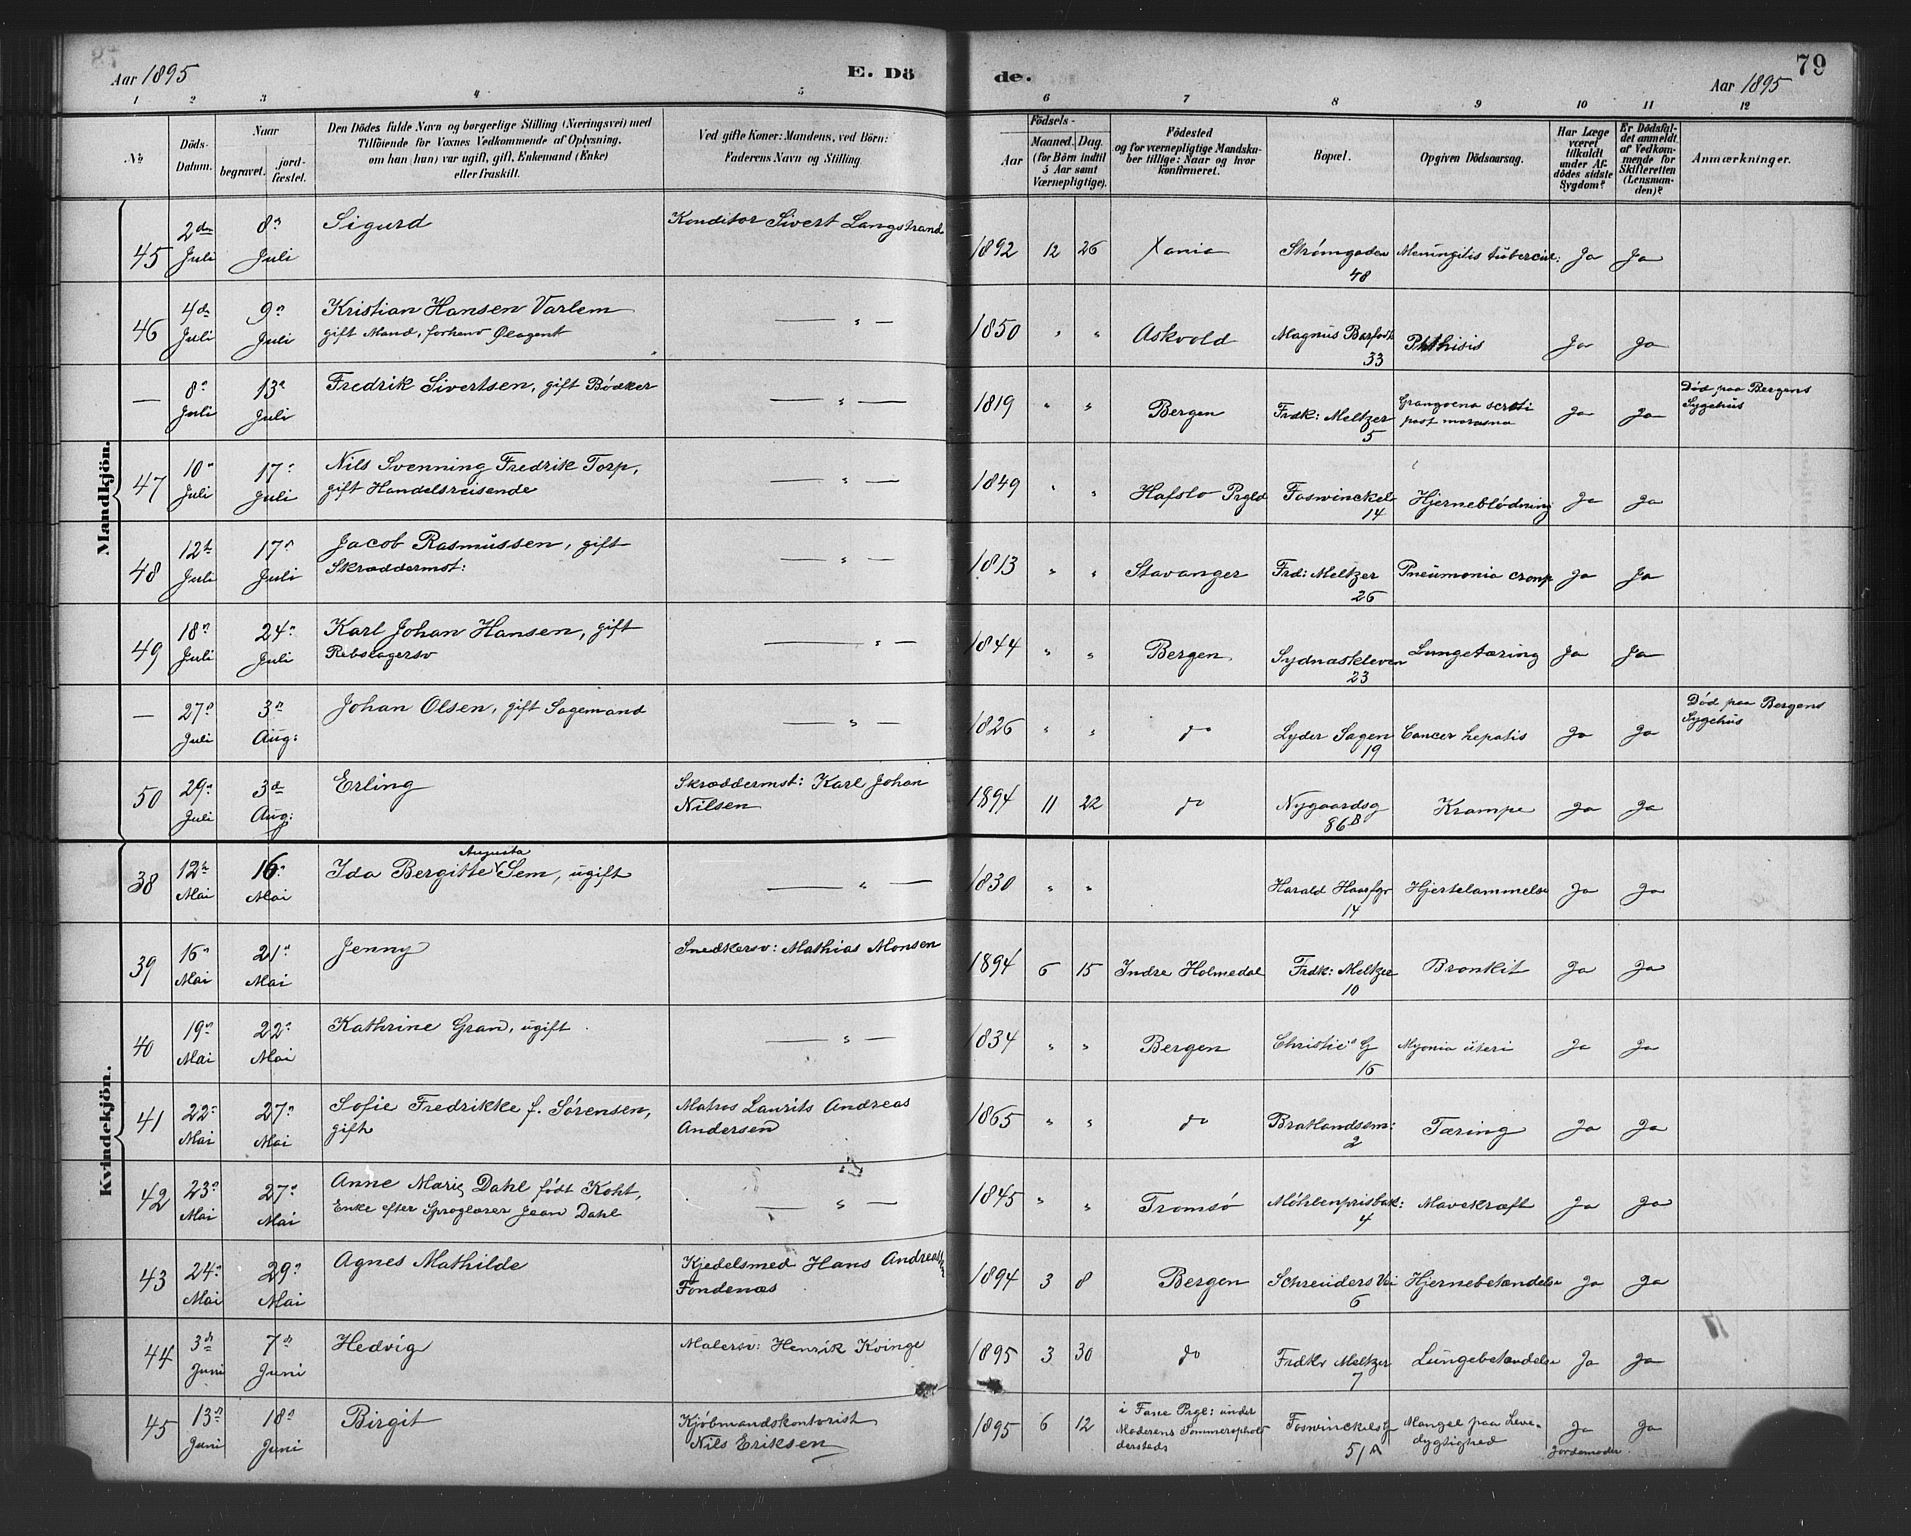 Aar 1895
E. Dö
de.
Aar 1895
79
1 2 3 4 5 6 7 8 9 10 11 12
No
Döds-
Datum.
Naar
begravet.
jord-
fæstet.
Den Dödes fulde Navn og borgerlige Stilling (Næringsvei) med
Tilföiende for Voxnes Vedkommende af Oplysning,
om han (hun) var ugift, gift, Enkemand (Enke)
eller fraskilt.
Ved gifte Koner: Mandens, ved Börn:
Faderens Navn og Stilling.
Födsels-
Aar
Maaned. Dag.
(for Börn indtil
5 Aar samt
Værnepligtige).
Födested
og for værnepligtige Mandska-
ber tillige: Naar og hvor
konfirmeret.
Bopæl.
Opgiven Dödsaarsag.
Har Læge
været
tilkaldt
under Af-
dödes sidste
Sygdom?
Er Dödsfal-
det anmeldt
af Vedkom-
mende for
Skifteretten
(Lensman-
den)?
Anmærkninger.
Mandkjön.
45 2den Juli 8n Juli Sigurd Konditor Sivert Langstrand 1892 12 26 Xania Strømgaden 48 Meningitis tubercul: Ja Ja
46 4de Juli 9n Juli Kristian Hansen Varlem
gift Mand, forhenv Ølagent — " — 1850 " " Askvold Magnus Barfodt 33 Phthisis Ja Ja
— 8n Juli 13n Juli Fredrik Sivertsen, gift Bødker — " — 1819 " " Bergen Frdk: Meltzer 5 Grangoena scroti
post Ja Ja Død paa Bergens
Sygehus
47 10n Juli 17n Juli Nils Svenning Fredrik Torp,
gift Handelsreisende — " — 1849 " " Hafslo Prgld Foswinckels 14 Hjerneblødning Ja Ja
48 12te Juli 17n Juli Jacob Rasmussen, gift
Skræddermst: — " — 1813 " " Stavanger Frd: Meltzer 26 Pneumonia croup Ja Ja
49 18n Juli 24n Juli Karl Johan Hansen, gift
Rebslagersv — " — 1844 " " Bergen Sydnæskleven 23 Lungetæring Ja Ja
— 27n Juli 3n Aug: Johan Olsen, gift Sagemand — " — 1826 " " do Lyder Sagen 19 Cancer hepatis Ja Ja Død paa Bergens
Sygehus
50 29n Juli 3de Aug: Erling Skræddermst: Karl Johan
Nilsen 1894 11 22 do Nygaardsg 86B Krampe Ja Ja
Kvindekjön.
38 12te Mai 16n Mai Ida Bergitte Augusta Sem, ugift — " — 1830 " " Harald Haarfgr 14 Hjertelammelse Ja Ja
39 16n Mai 21n Mai Jenny Snedkersv: Mathias Monsen 1894 6 15 Indre Holmedal Frdk: Meltzer 10 Bronkit Ja Ja
40 19n Mai 22n Mai Kathrine Gran, ugift — " — 1834 " " Bergen Christies G 16 uteri Ja Ja
41 22n Mai 27n Mai Sofie Fredrikke f. Sørensen,
gift Matros Laurits Andreas
Andersen 1865 " " do Bratlandsm: 2 Tæring Ja Ja
42 23n Mai 27n Mai Anne Marie Dahl født Koht,
Enke efter Sproglærer Jean Dahl — " — 1845 " " Tromsø Møhlenprisbak: 4 Mavekræft Ja Ja
43 24n Mai 29n Mai Agnes Mathilde Kjedelsmed Hans Andreas
Fondenæs 1894 3 8 Bergen Schreuders Vei 6 Hjernebetændelse Ja Ja
44 3de Juni 7de Juni Hedvig Malersv: Henrik Kvinge 1895 3 30 do Frdkr Meltzer 7 Lungebetændelse Ja Ja
45 13n Juni 18n Juni Birgit Kjøbmandskontorist
Nils Eriksen 1895 6 12 i Fane Prgl: under
Moderens Sommerophol
dersteds Foswinckelsg 51A Mangel paa Leve-
dygtighed Ja
Jordemoder Ja